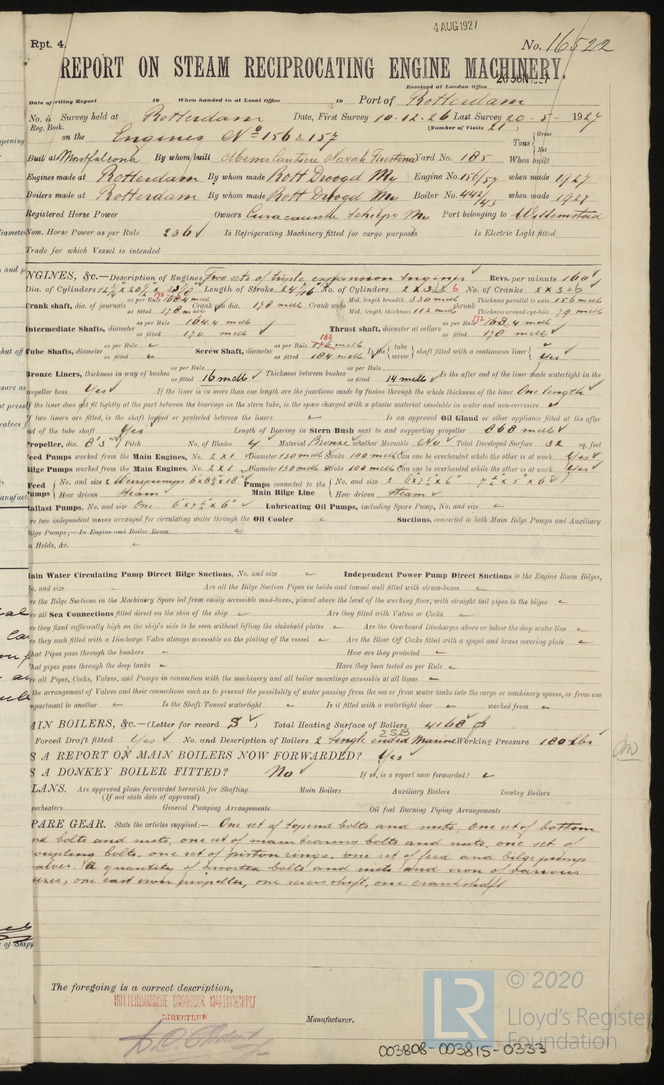 4 AUG 1927
Rpt. 4.
No. 16522
REPORT ON STEAM RECIPROCATING ENGINE MACHINERY.
Received at London Office
Date of writing Report 19 When handed in at Local Office 19 Port of Rotterdam
No. in Survey held at Rotterdam Date, First Survey 10-12-26 Last Survey 20-5-1927
Reg. Book. (Number of Visits 21)
on the Engines No 156 & 157 Tons Gross Net
Built at Monfalcone By whom built Yard No. 185 When built
Engines made at Rotterdam By whom made Rott Droogd My Engine No. 156/57 when made 1927
Boilers made at Rotterdam By whom made Rott Droogd My Boiler No. 442/443 when made 1927
Registered Horse Power Owners Port belonging to Willemstad
Nom. Horse Power as per Rule 236 Is Refrigerating Machinery fitted for cargo purposes Is Electric Light fitted
Trade for which Vessel is intended
NGINES, &c.—Description of Engines Two sets of triple expansion engines Revs. per minute 160
Dia. of Cylinders Length of Stroke No. of Cylinders 2 x 3 = 6 No. of Cranks 2 x 3 = 6
Crank shaft, dia. of journals as per Rule as fitted 178 mell Crank pin dia. 178 mell Crank webs Mid. length breadth 330 mell Thickness parallel to axis 156 mell
Mid. length thickness 112 mell shrunk Thickness around eye-hole 79 mell
Intermediate Shafts, diameter as per Rule 164.4 mell as fitted 170 mell Thrust shaft, diameter at collars as per Rule 172 as fitted 178 mell
Tube Shafts, diameter as per Rule as fitted Screw Shaft, diameter as per Rule as fitted 184 mell Is the tube screw shaft fitted with a continuous liner Yes
Bronze Liners, thickness in way of bushes as per Rule as fitted 16 mells Thickness between bushes as per Rule as fitted 14 mells Is the after end of the liner made watertight in the
propeller boss Yes If the liner is in more than one length are the junctions made by fusion through the whole thickness of the liner One length
If the liner does not fit tightly at the part between the bearings in the stern tube, is the space charged with a plastic material insoluble in water and non-corrosive
If two liners are fitted, is the shaft lapped or protected between the liners Is an approved Oil Gland or other appliance fitted at the after
end of the tube shaft Yes Length of Bearing in Stern Bush next to and supporting propeller 868 mells
Propeller, dia. 8'3" Pitch No. of Blades 4 Material Bronze whether Moveable No Total Developed Surface 32 sq. feet
Feed Pumps worked from the Main Engines, No. 2 x 1 Diameter 130 mells Stroke 100 mells Can one be overhauled while the other is at work Yes
Bilge Pumps worked from the Main Engines, No. 2 x 1 Diameter 130 mells Stroke 100 mells Can one be overhauled while the other is at work Yes
Feed Pumps No. and size 2 Weirspumps How driven Steam Pumps connected to the Main Bilge Line No. and size How driven Steam
Ballast Pumps, No. and size One Lubricating Oil Pumps, including Spare Pump, No. and size
re two independent means arranged for circulating water through the Oil Cooler Suctions, connected to both Main Bilge Pumps and Auxiliary
Bilge Pumps;—In Engine and Boiler Room
n Holds, &c.
ain Water Circulating Pump Direct Bilge Suctions, No. and size Independent Power Pump Direct Suctions to the Engine Room Bilges,
o. and size Are all the Bilge Suction Pipes in holds and tunnel well fitted with strum-boxes
re the Bilge Suctions in the Machinery Space led from easily accessible mud-boxes, placed above the level of the working floor, with straight tail pipes to the bilges
re all Sea Connections fitted direct on the skin of the ship Are they fitted with Valves or Cocks
re they fixed sufficiently high on the ship's side to be seen without lifting the stokehold plates Are the Overboard Discharges above or below the deep water line
re they each fitted with a Discharge Valve always accessible on the plating of the vessel Are the Blow Off Cocks fitted with a spigot and brass covering plate
hat Pipes pass through the bunkers How are they protected
hat pipes pass through the deep tanks Have they been tested as per Rule
re all Pipes, Cocks, Valves, and Pumps in connection with the machinery and all boiler mountings accessible at all times
the arrangement of Valves and their connections such as to prevent the possibility of water passing from the sea or from water tanks into the cargo or machinery spaces, or from one
partment to another Is the Shaft Tunnel watertight Is it fitted with a watertight door worked from
AIN BOILERS, &c.—(Letter for record S) Total Heating Surface of Boilers 4168
Forced Draft fitted Yes No. and Description of Boilers 2 Single ended Marine Working Pressure 180 lbs
2 SB
S A REPORT ON MAIN BOILERS NOW FORWARDED? Yes
S A DONKEY BOILER FITTED? No If so, is a report now forwarded?
LANS. Are approved plans forwarded herewith for Shafting Main Boilers Auxiliary Boilers Donkey Boilers
(If not state date of approval)
perheaters General Pumping Arrangements Oil fuel Burning Piping Arrangements
PARE GEAR. State the articles supplied:— One set of topend bolts and nuts, One set of bottom
nd bolts and nuts, one set of mainbearing bolts and nuts, one set of
coupling bolts, one set of piston rings, one set of feed and bilge pump
valves. A quantity of assorted bolts and nuts and iron of various
sizes, one cast iron propeller, one screwshaft, one crankshaft
The foregoing is a correct description,
ROTTERDAMSCHE DROOGDOK MAATSCHAPPIJ
DIRECTEUR
Manufacturer.
© 2020
LR
Lloyd's Register
Foundation
003808-003815-0333